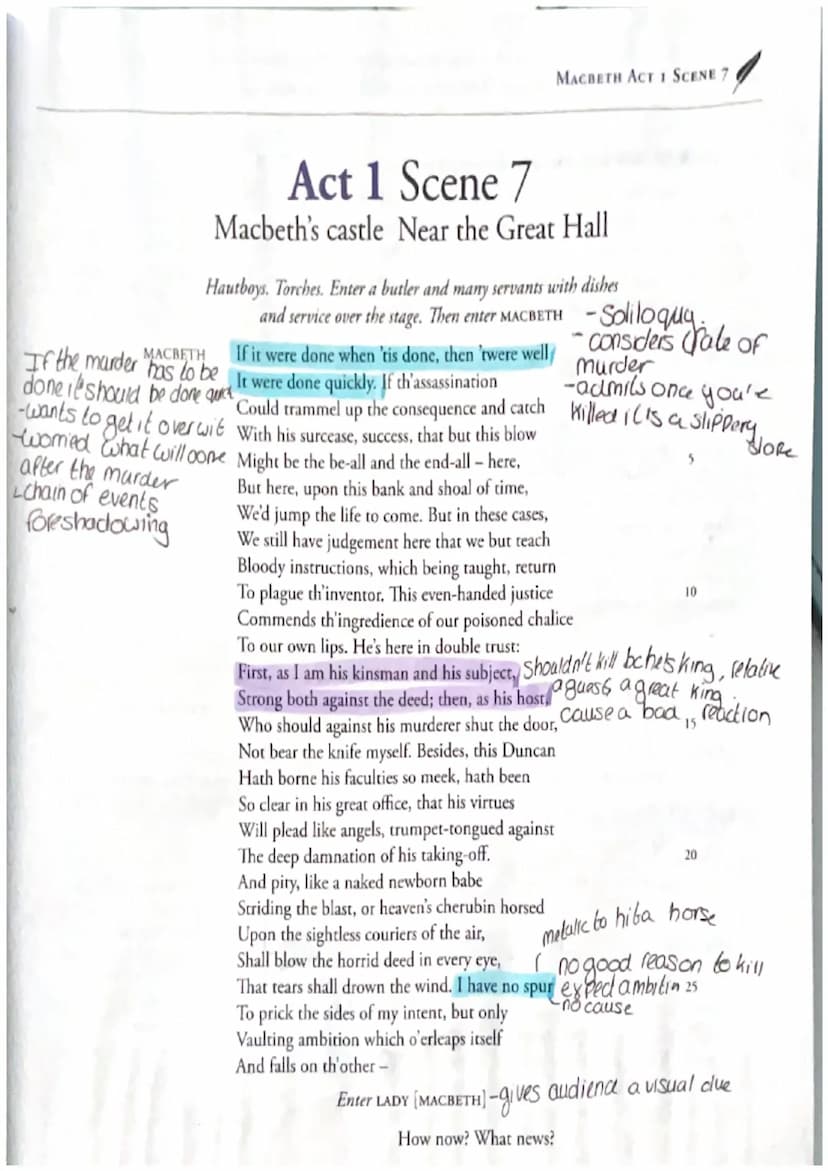 MACBETH ACT 1 SCENE 7
Act 1 Scene 7
Macbeth's castle Near the Great Hall
Hautboys. Torches. Enter a butler and many servants with dishes
and service over the stage. Then enter MACBETH
- Soliloquy.
- considers fate of
murder
- admits once you've
killed it is a slippery
slope
If the murder has to be
done it should be done quick
-wants to get it over wit
-worried what will come
after the murder
chain of events
foreshadowing
MACBETH
If it were done when 'tis done, then 'twere well
It were done quickly. If th'assassination
Could trammel up the consequence and catch
With his surcease, success, that but this blow
Might be the be-all and the end-all – here, 5
But here, upon this bank and shoal of time,
We'd jump the life to come. But in these cases,
We still have judgement here that we but teach
Bloody instructions, which being taught, return
To plague th'inventor. This even-handed justice 10
Commends th'ingredience of our poisoned chalice
To our own lips. He's here in double trust:
First, as I am his kinsman and his subject,
Strong both against the deed; then, as his host,
Who should against his murderer shut the door, 15
Not bear the knife myself. Besides, this Duncan
Hath borne his faculties so meek, hath been
So clear in his great office, that his virtues
Will plead like angels, trumpet-tongued against
The deep damnation of his taking-off. 20
And pity, like a naked newborn babe
Striding the blast, or heaven's cherubin horsed
Upon the sightless couriers of the air,
Shall blow the horrid deed in every eye,
That tears shall drown the wind. I have no spur 25
To prick the sides of my intent, but only
Vaulting ambition which o'erleaps itself
And falls on th'other –
shouldn't kill bc he's king, relative
a guest, a great king.
cause a bad reaction
to hit a horse
no good reason to kill
ambitin
no cause
Enter LADY [MACBETH] -gives audience a visual clue
How now? What news?